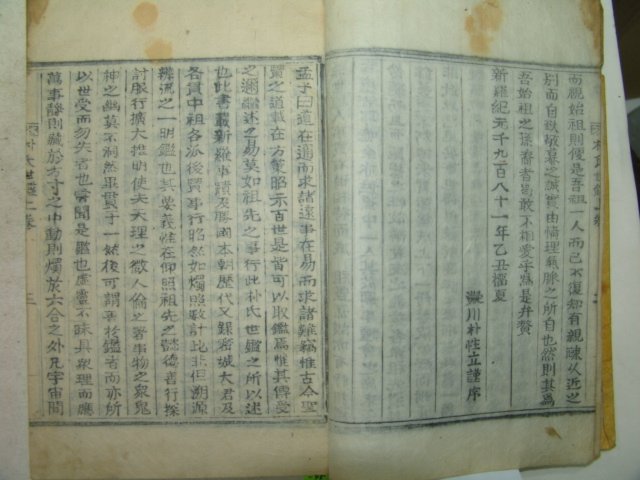 而視始祖則便是吾祖一人而已不復知有親疎以近之
別而自欲敬慕之誠實由倫理氣脉之所自也然則其爲
吾始祖之孫裔者曷敢不相愛乎爲是弁贅
新羅紀元千九百八十一年乙丑榴夏
川朴性立謹序
朴氏世鑑一卷
二
孟子曰道在邇而求諸遠事在易而求諸難竊惟古今聖
賢之道載在方策昭示百世是皆可以取鑑焉惟其傳受
之邇繼述之易莫如祖先之事行此朴氏世鑑之所以述
也此書嚴新羅事蹟及勝國本朝歷代又錄密城大君及
各貫中祖各派後賢事行昭然如燭照數計此非但溯源
辨流之一明鑑也其要義惟在仰照祖先之懿德善行探
討服行擴大推明使夫天理之微人倫之著事物之衆鬼
神之幽莫不洞然畢貫于一然後可謂善於鑑者而亦所
以世受而勿失者也嘗聞是鑑也虛靈不昧具衆理而應
萬事靜則藏於方寸之中動則燭於六合之外凡宇宙間
朴氏世鑑一卷
三